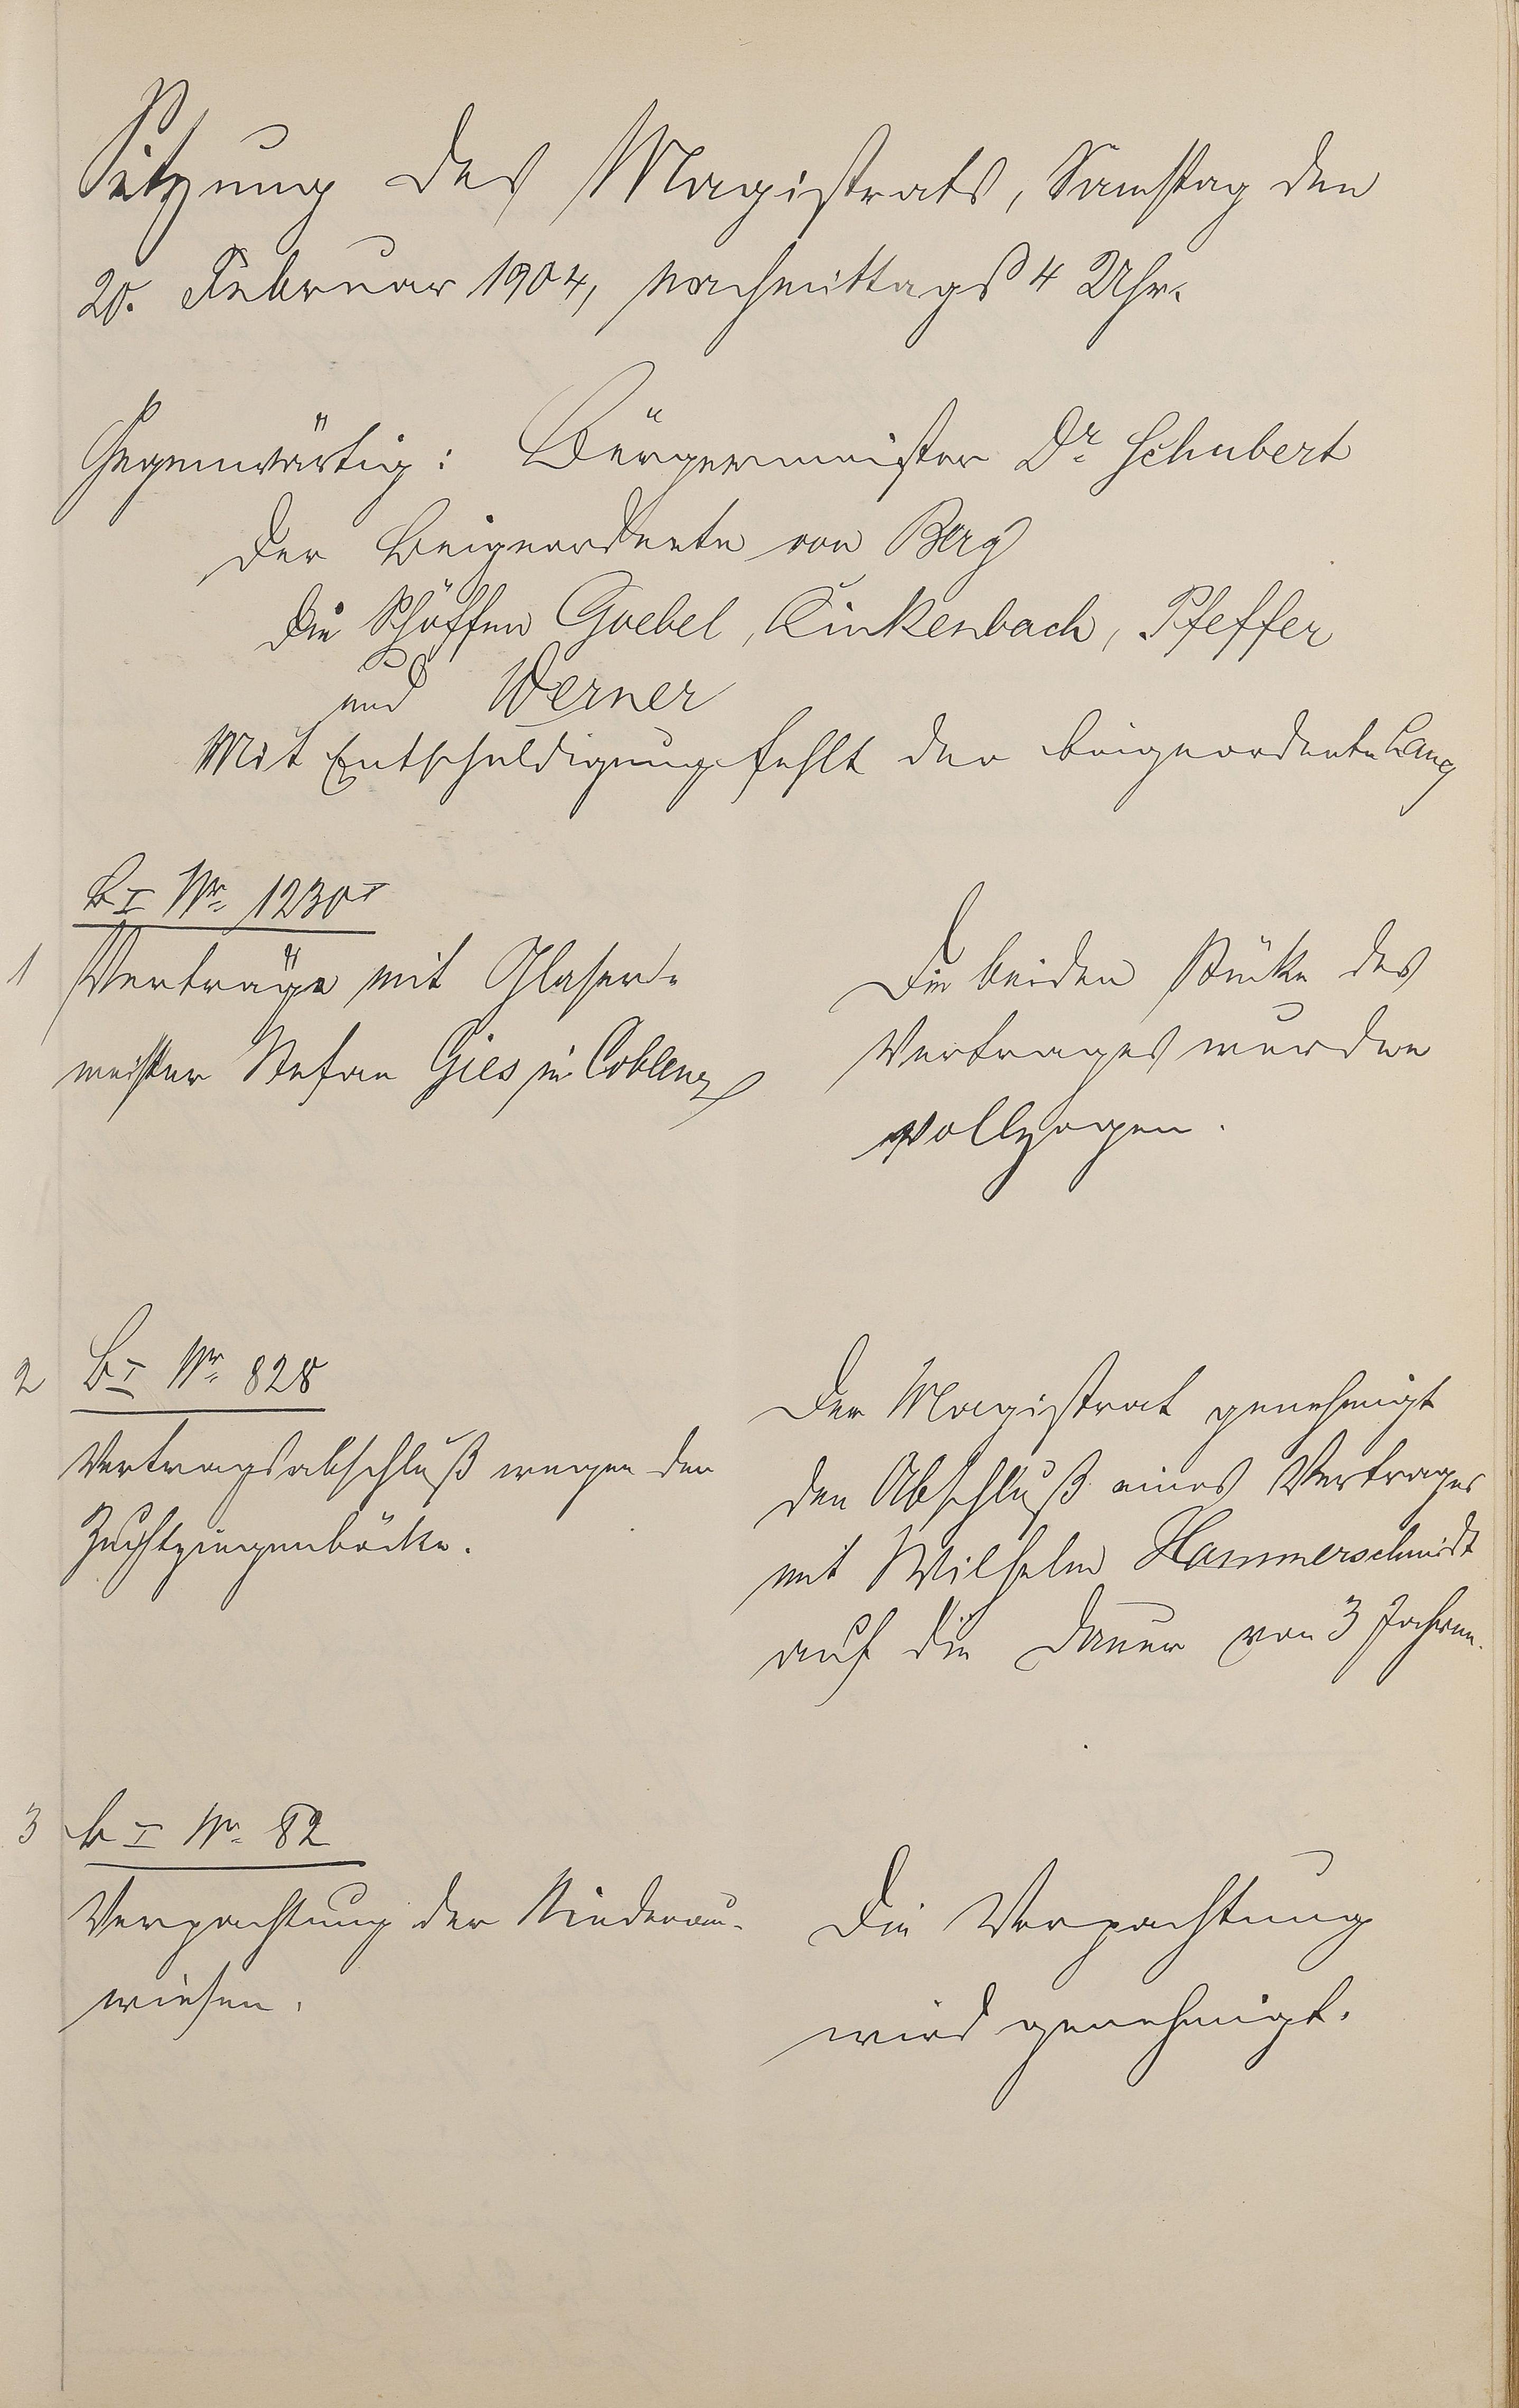 Sitzung des Magistrats, Samstag den
20. Februar 1904, nachmittags 4 Uhr.
Gegenwärtig: Bürgermeister Dr. Schubert
der Beigeordnete von Berg
die Schöffen Goebel, Kinkenbach, Pfeffer
und Werner
Mit Entschuldigung fehlt der Beigeordnete Lang
B I Nr. 1230 I
1 Verträge mit Glaser-
meister Stefan Gies in Coblenz
Die beiden Stücke des
Vertrages wurden
vollzogen.
2 B I Nr. 828
Vertragsabschluß wegen der
Zuchtziegenböcke.
Der Magistrat genehmigt
den Abschluß eines Vertrages
mit Wilhelm Hammerschmidt
auf die Dauer von 3 Jahren.
3 B I Nr. 82
Verpachtung der Niederau-
wiesen.
Die Verpachtung
wird genehmigt.